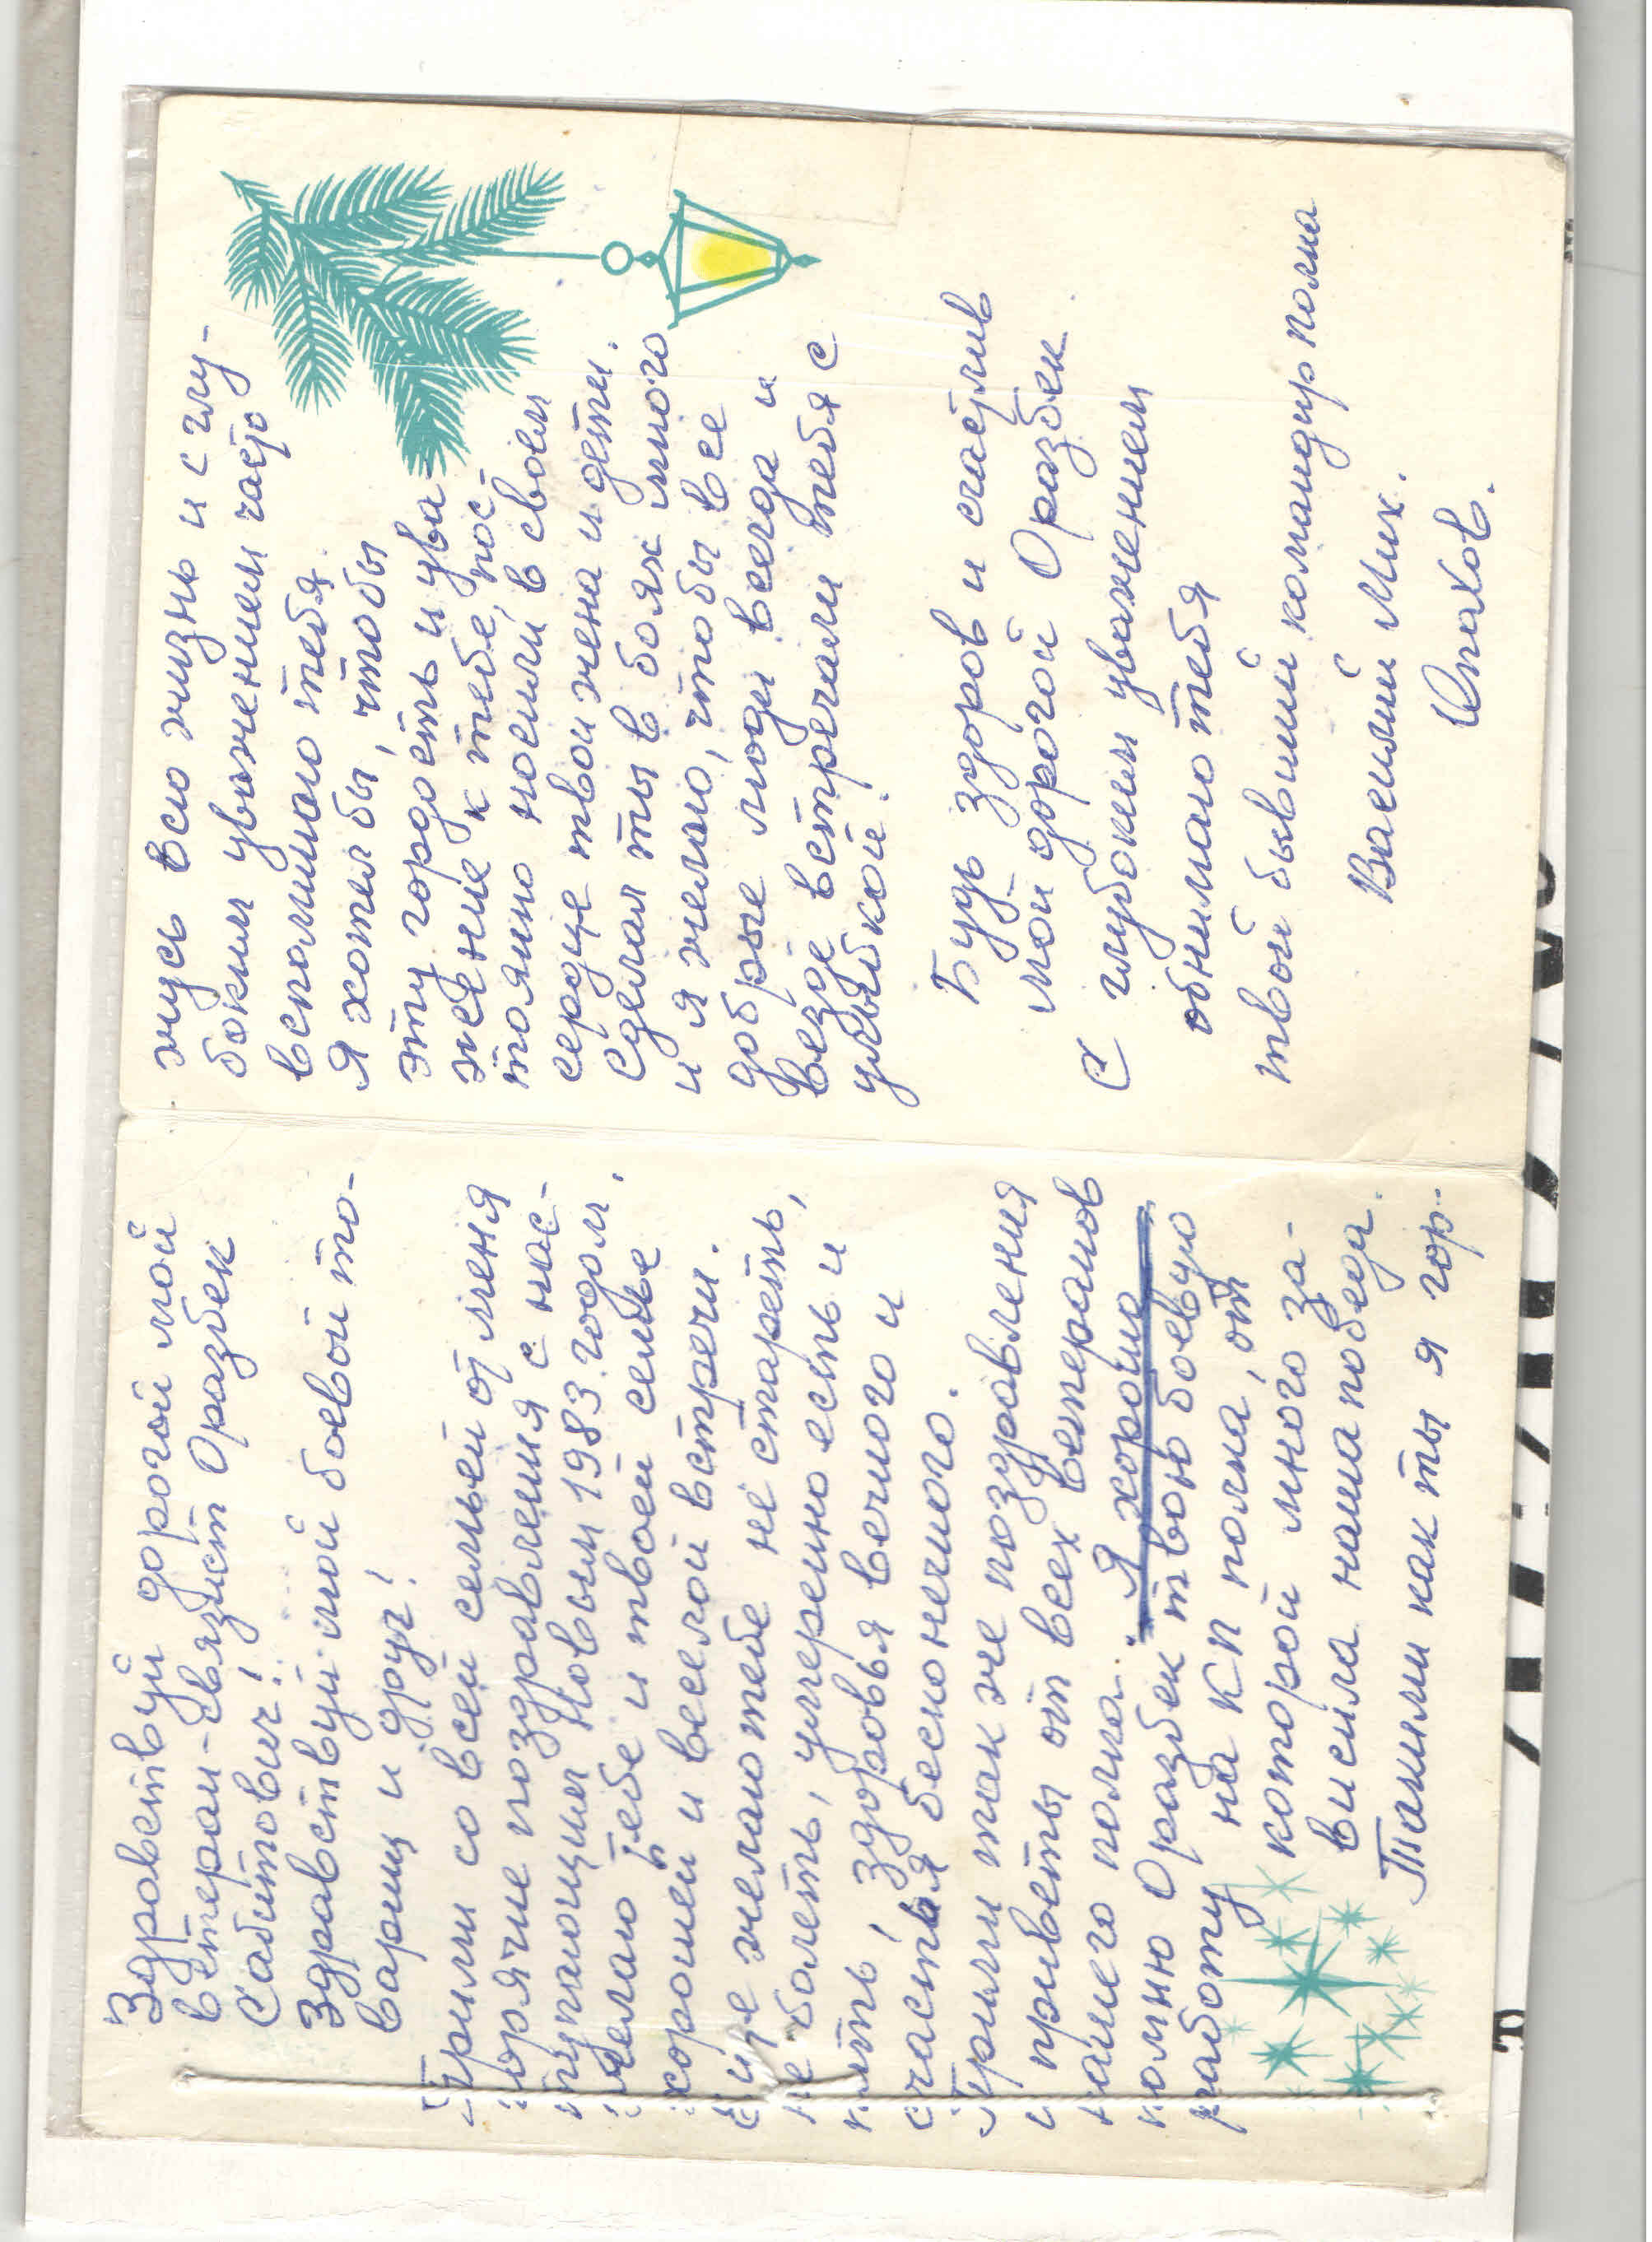 Здравствуй дорогой мой
ветеран-связист Оразбек
Сабитович!
Здравствуй мой боевой то-
варищ и друг!
Прими со всей семьей от меня
горячие поздравления с нас-
тупающим Новым 1983 годом,
желаю тебе и твоей семье
хорошей и веселой встречи.
Еще желаю тебе не стареть,
не болеть, умеренно есть и
пить, здоровья вечного и
счастья бесконечного.
Прими так же поздравления
и приветы от всех ветеранов
нашего полка. Я хорошо
помню Оразбек твою боевую
работу на КП полка, от
которой много за-
висила наша победа.
Такими как ты я гор-
жусь всю жизнь и с глу-
боким уважением часто
вспоминаю тебя.
Я хотел бы, чтобы
эту гордость и ува-
жение к тебе, пос-
тоянно носили в своем
сердце твои жена и дети.
Сделал ты в боях много
и я желаю, чтобы все
добрые люди всегда и
везде встречали тебя с
улыбкой!
Будь здоров и счастлив
мой дорогой Оразбек
С глубоким уважением
обнимаю тебя
твой бывший командир полка
Василий Мих.